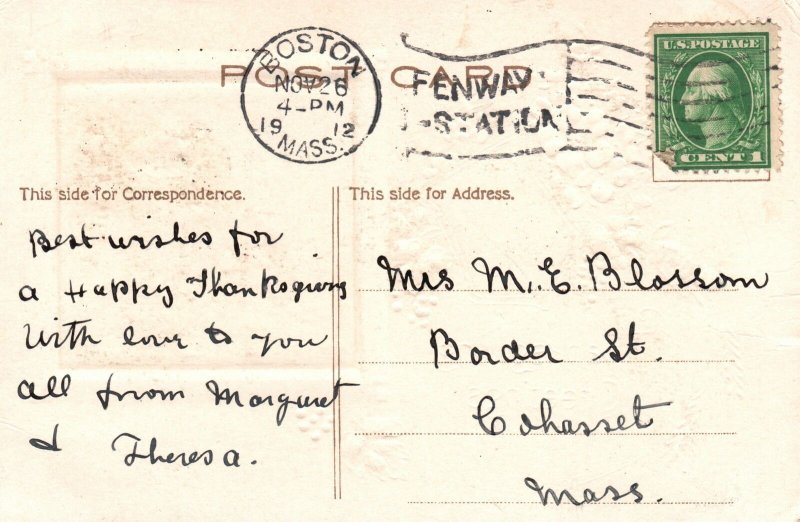 BOSTON
NOV 26
4-PM
19 12
MASS.
POST CARD
FENWAY
STATION
U.S. POSTAGE
CENT 1
This side for Correspondence.
This side for Address.
Best wishes for
a Happy Thanksgiving
with love to you
all from Margaret
& Theresa.
Mrs M. E. Blossom
Border St.
Cohasset
Mass.